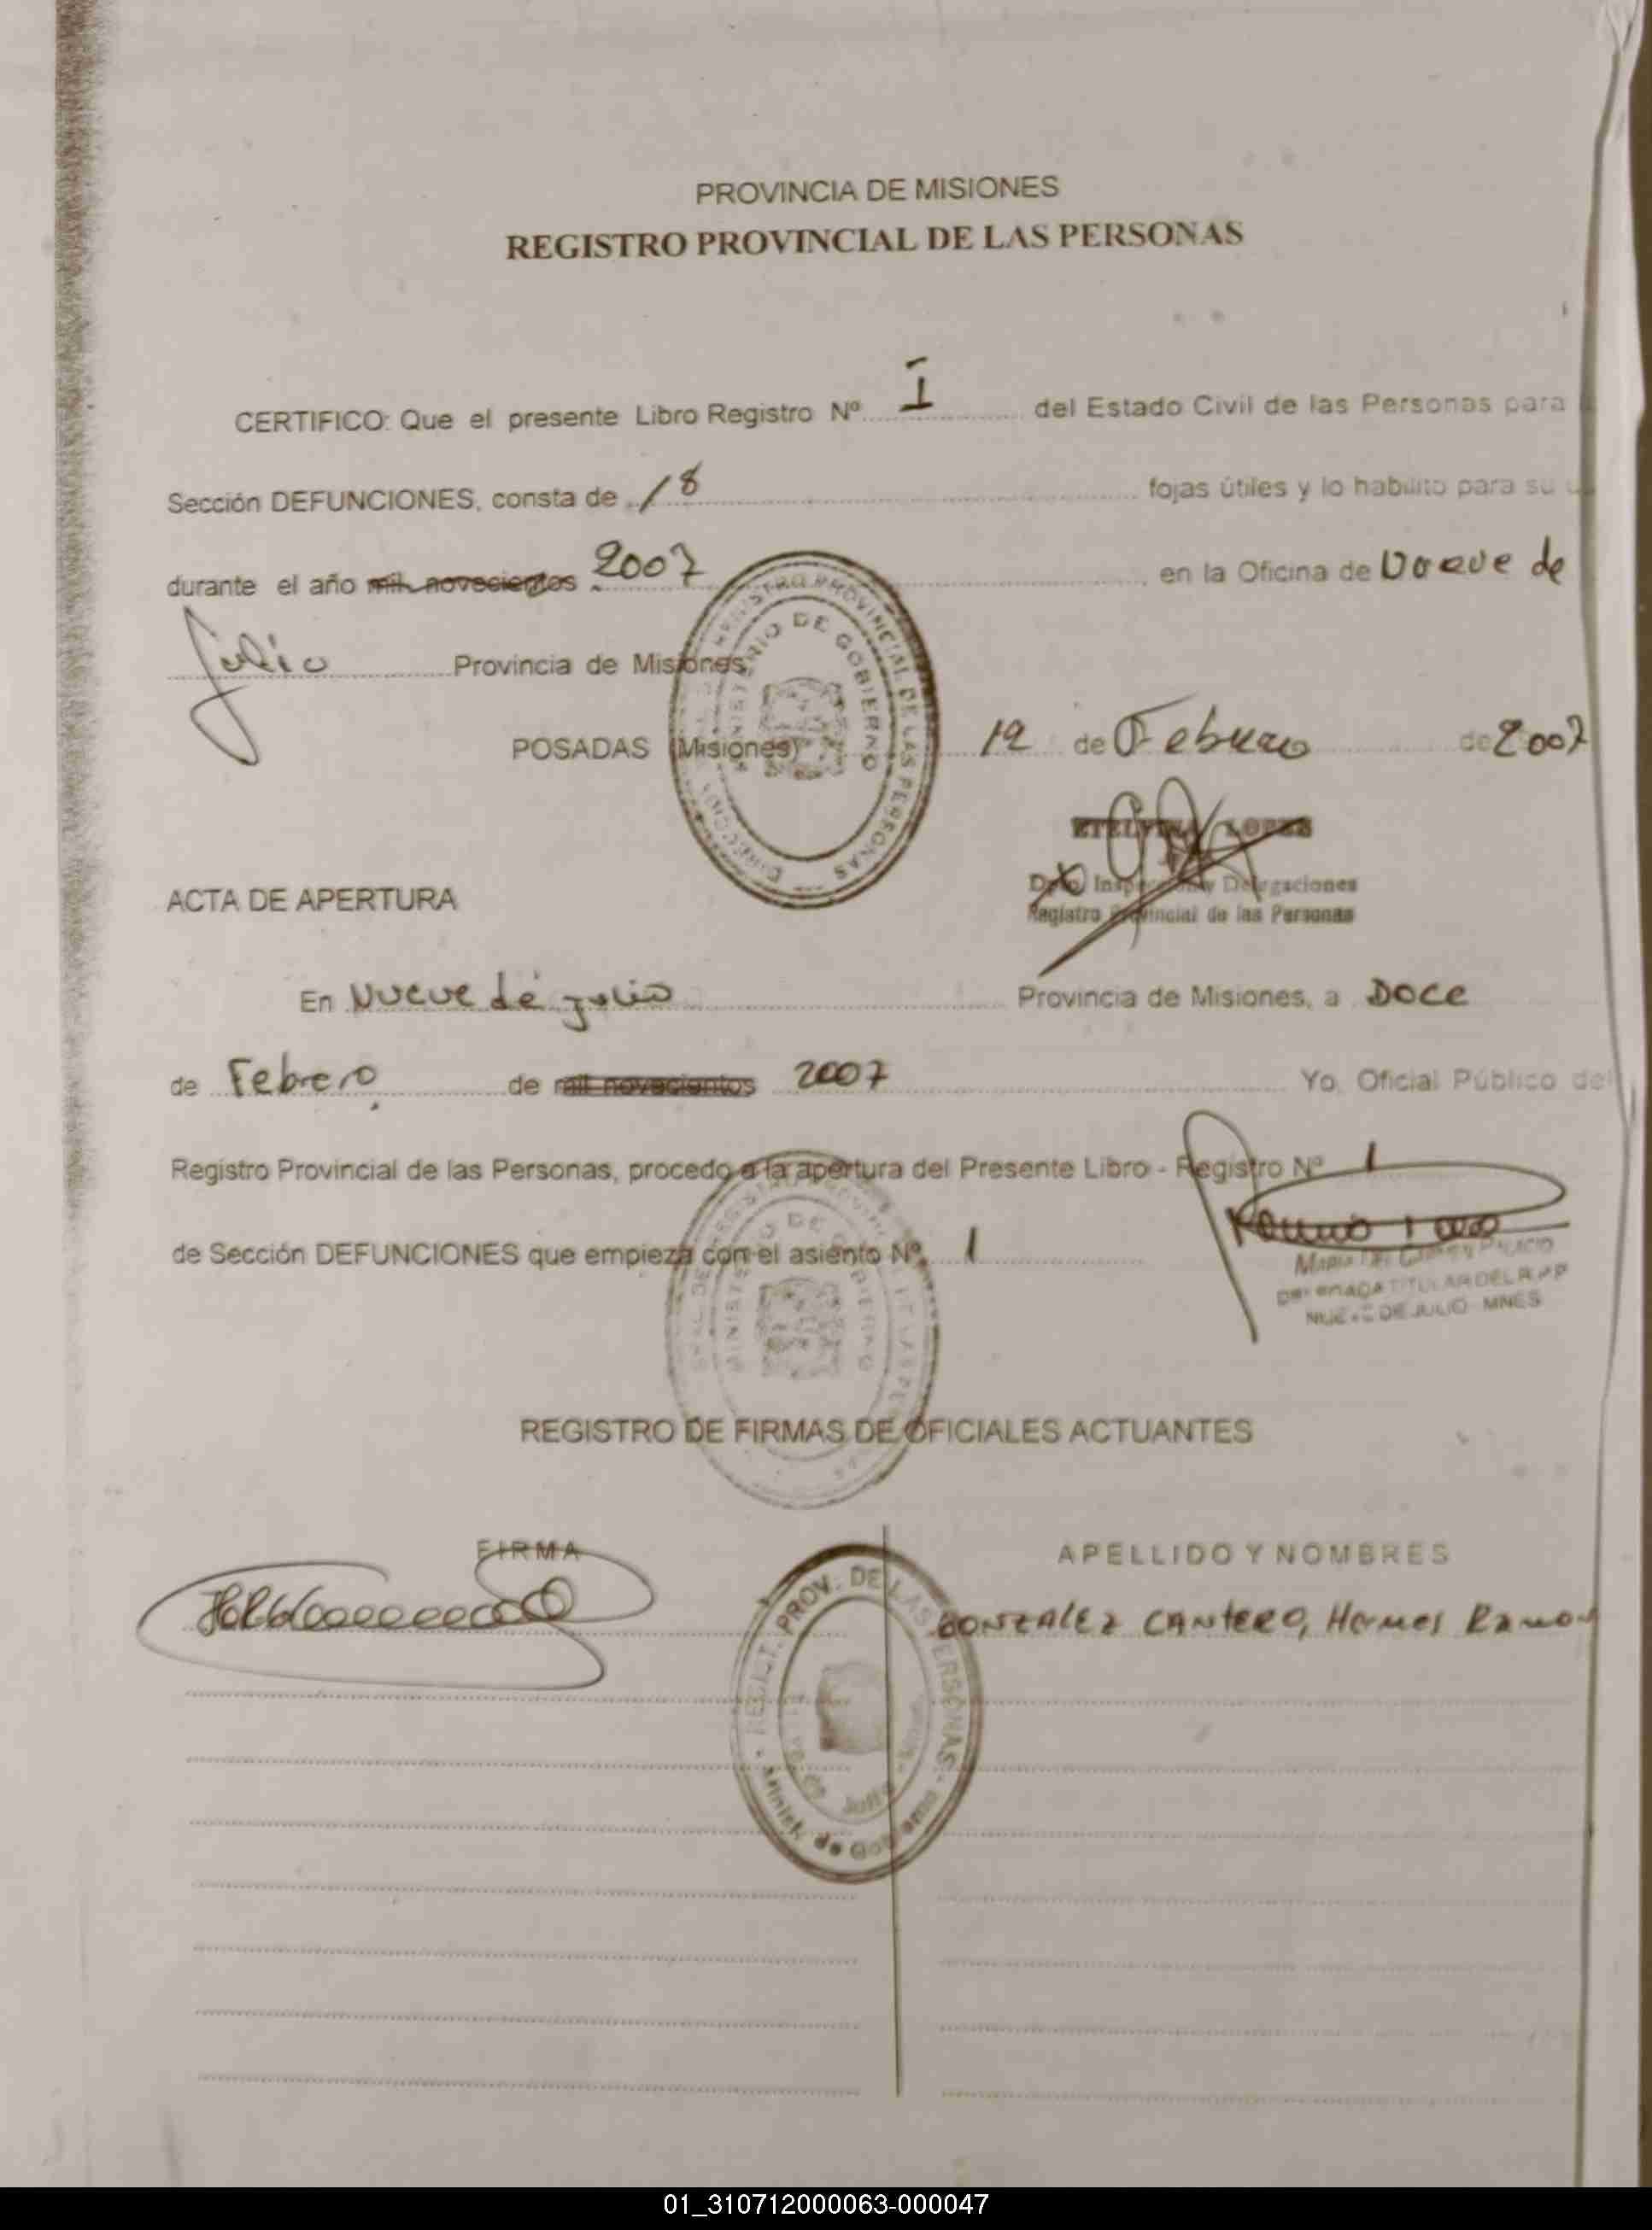 PROVINCIA DE MISIONES
REGISTRO PROVINCIAL DE LAS PERSONAS
CERTIFICO: Que el presente Libro Registro Nº I del Estado Civil de las Personas para
Sección DEFUNCIONES, consta de 18 fojas útiles y lo habilito para su
durante el año mil novecientos 2007 en la Oficina de Nueve de
Julio Provincia de Misiones
POSADAS (Misiones) 12 de Febrero de 2007
REGISTRO PROVINCIAL DE LAS PERSONAS
MINISTERIO DE GOBIERNO
ETELVINA LOPES
Dpto. Inspección y Delegaciones
Registro Provincial de las Personas
ACTA DE APERTURA
En Nueve de julio Provincia de Misiones, a DOCE
de Febrero de mil novecientos 2007 Yo, Oficial Público del
Registro Provincial de las Personas, procedo a la apertura del Presente Libro - Registro Nº 1
de Sección DEFUNCIONES que empieza con el asiento Nº 1
DELEGADA TITULAR DEL R.P.P
NUEVE DE JULIO - MNES
REGISTRO DE FIRMAS DE OFICIALES ACTUANTES
FIRMA APELLIDO Y NOMBRES
GONZALEZ CANTERO, Hermes Ramon
REGIST. PROV. DE LAS PERSONAS
Minist. de Gobierno
01_310712000063-000047